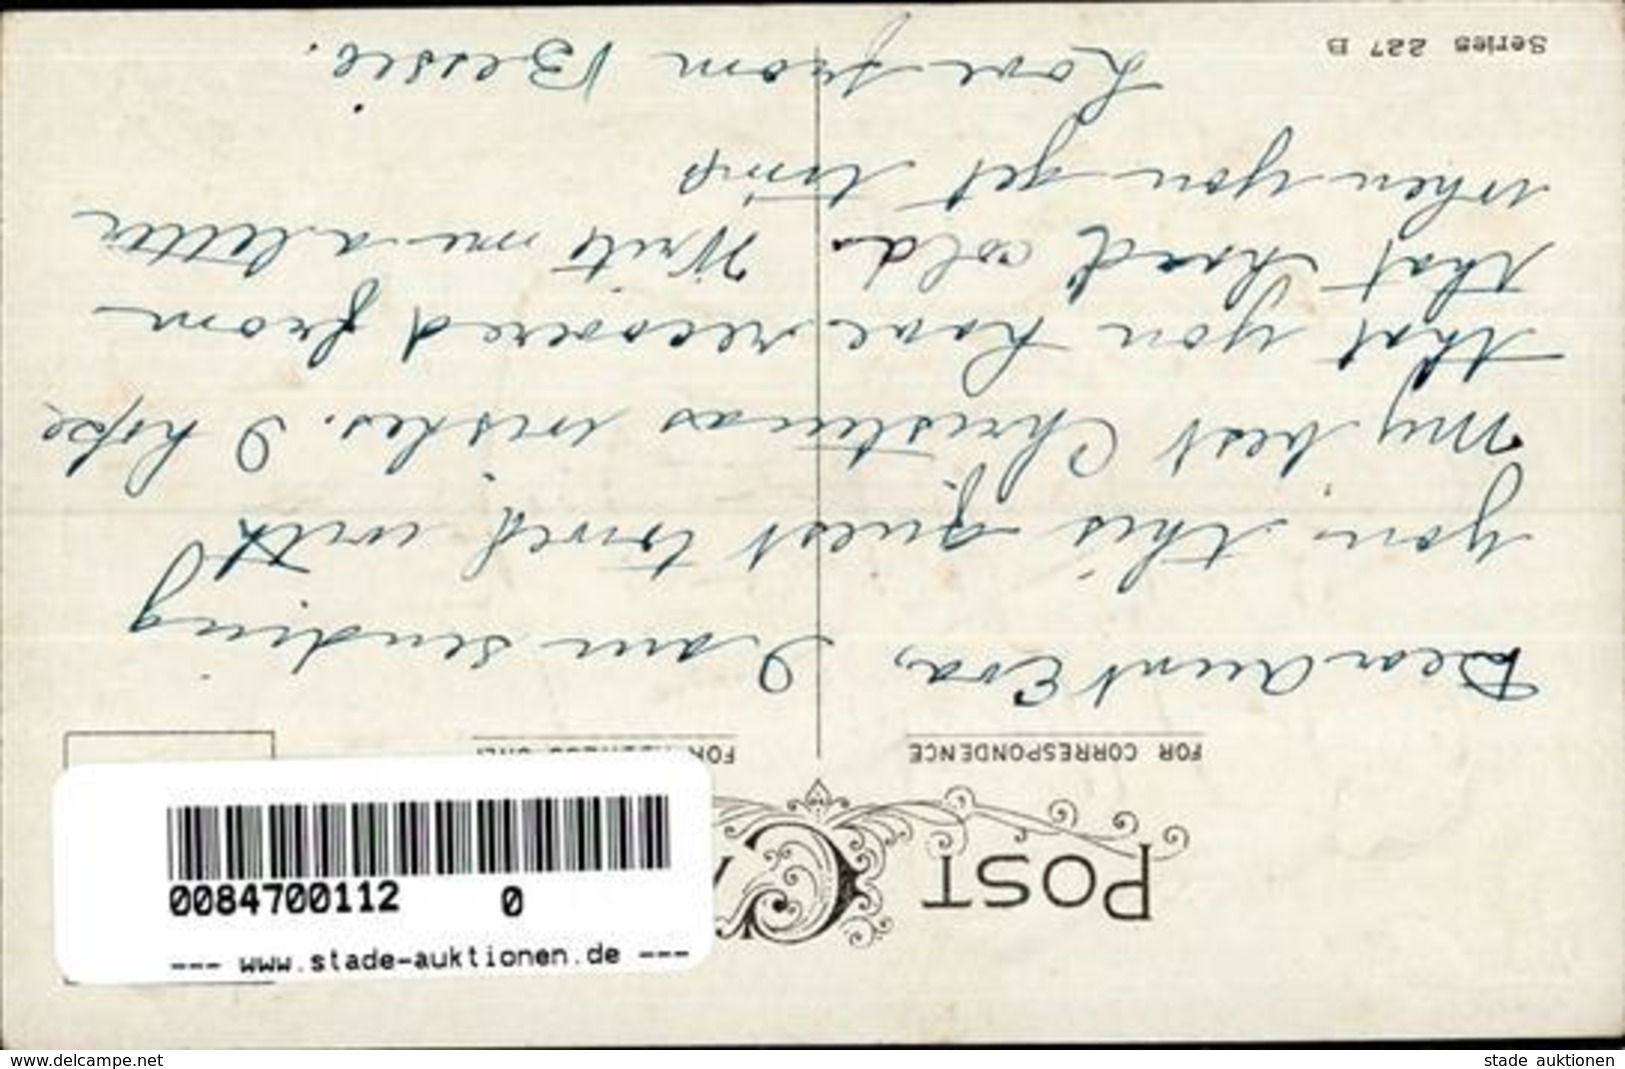 POST
FOR CORRESPONDENCE
Dear Aunt Eva,
I am sending
you this quest towel with
my best Christmas wishes. I hope
that you have recovered from
that head cold. Write me a letter
when you get time
Love from Bessie.
Series 227 B
0084700112 0
--- www.stade-auktionen.de ---
www.delcampe.net
stade auktionen